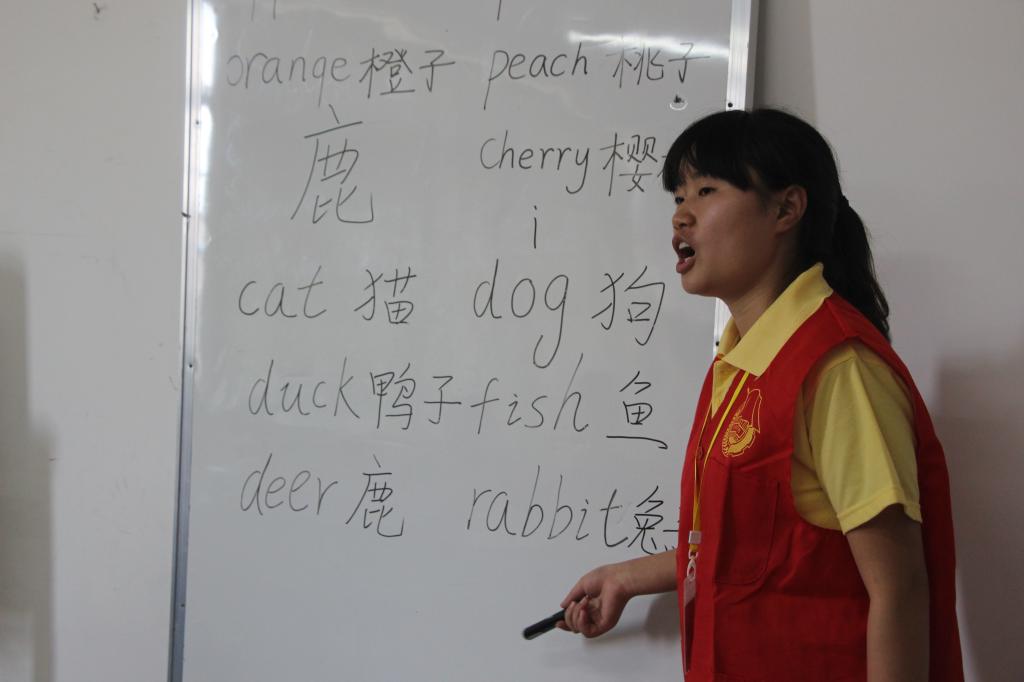 orange 橙子 peach 桃子
鹿 cherry 樱
i
cat 猫 dog 狗
duck 鸭子 fish 鱼
deer 鹿 rabbit 兔